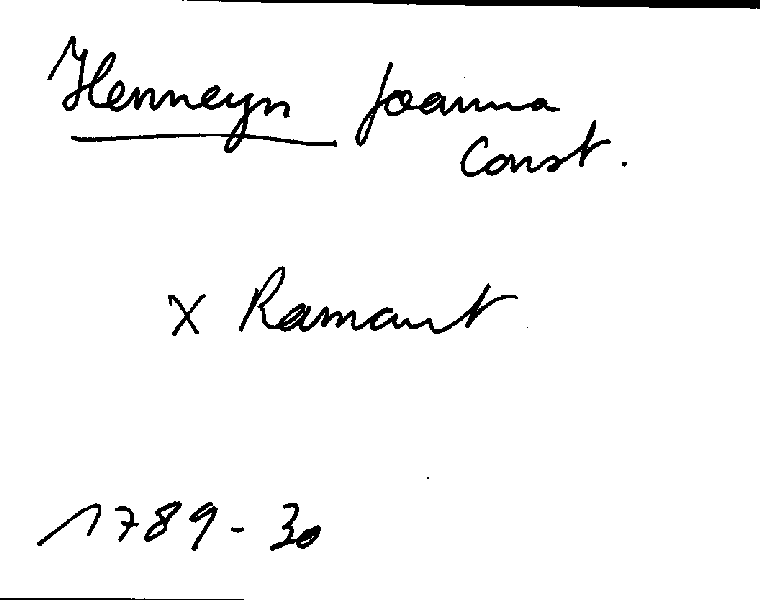 Henneyn Joanna
Const.
x Ramaut
1789-30